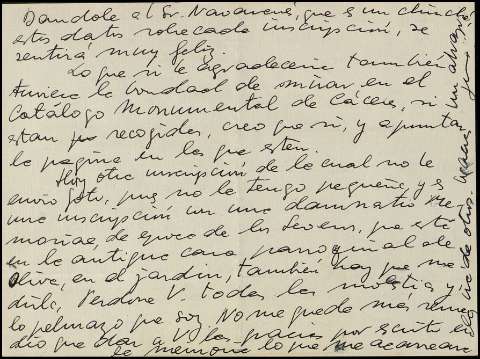 Dandole al Sr. Navareño, que es un chinche
estos datos sobre cada inscripción, se
sentirá muy feliz.
Lo que si le agradeceria tambien
tuviese la bondad de mirar en el
Catálogo Monumental de Cáceres, si
estan recogidas, creo que si, y apuntar
la pagina en las que esten.
Hay otra inscripción de la cual no le
envio foto, pues no la tengo pequeña, y es
una inscripción con una damnatio me
moriae, de epoca de los Severos, que está
en la antigua casa parroquial de
Oliva, en el jardin, tambien hay que me
dirla, Perdone V. todas las molestias y
lo pelmazo que soy. No me queda más reme
dio que dar a V. las gracias por escrito en
la memoria lo que me acarreará
un abrazo